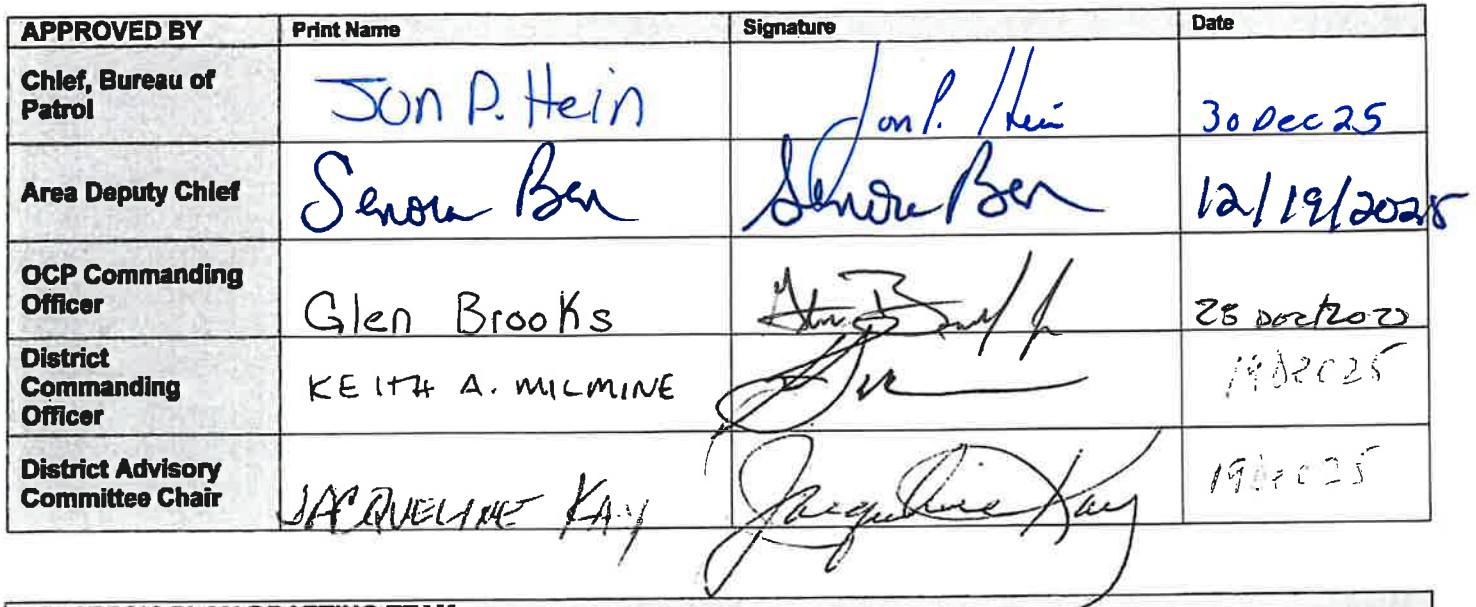 APPROVED BY Print Name Signature Date
Chief, Bureau of
Patrol
Jon P. Hein Jon P. Hein 30 Dec 25
Area Deputy Chief Senora Ben Senora Ben 12/19/2025
OCP Commanding
Officer
Glen Brooks 28
District
Commanding
Officer
KEITH A. MILMINE 19 Dec 25
District Advisory
Committee Chair
JACQUELINE KAY Jacqueline Kay 19 Dec 25